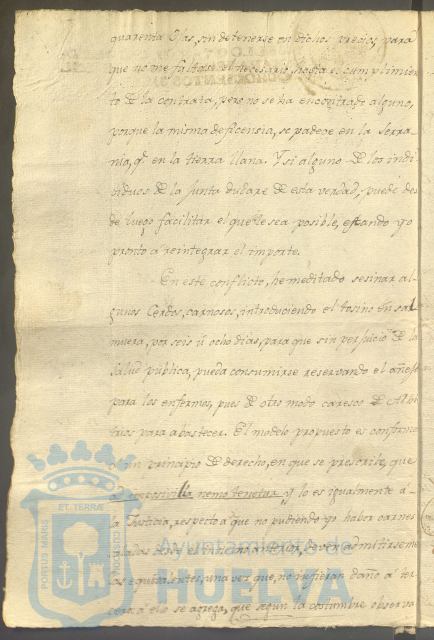 quarenta Dias, sin detenerse en dichos precios, para
que no me faltase el necesario, hasta el cumplimien
to de la contrata, pero no se ha encontrado alguno,
porque la misma deficensia, se padese en la serra
nia, q.e en la tierra llana. Y si alguno de los indi
biduos de la junta dudare de esta verdad, puede des
de luego facilitar el que le sea posible, estando yo
pronto a reintegrar el importe.
En este conflicto, he meditado sesinar al
gunos Cerdos, carnosos, introduciendo el tosino en sal
muera, por seis ú ocho dias, para que sin perjuicio de la
salud publica, pueda consumirse reservando el añejo
para los enfermos, pues de otro modo caresco de Arbi
trios para abastecer. El modelo propuesto es conforme
a un principio de derecho, en que se prescribe, que
nemo tenetur, y lo es igualmente á
la Justicia, respecto a que no pudiendo yo haber carnes
saladas del Ynvierno anterior, devera admitirseme
los equivalentes, una vez que, no infieran daño á ter
cero. á ello se agrega, que segun la costumbre observa
PORTUS MARIS
ET TERRÆ
CUSTODIA
Ayuntamiento de
HUELVA